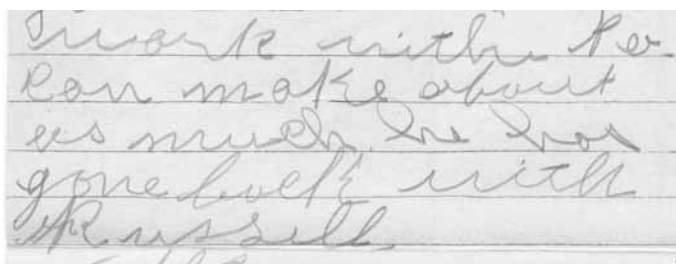 work with he
can make about
as much he has
gone back with
Russell